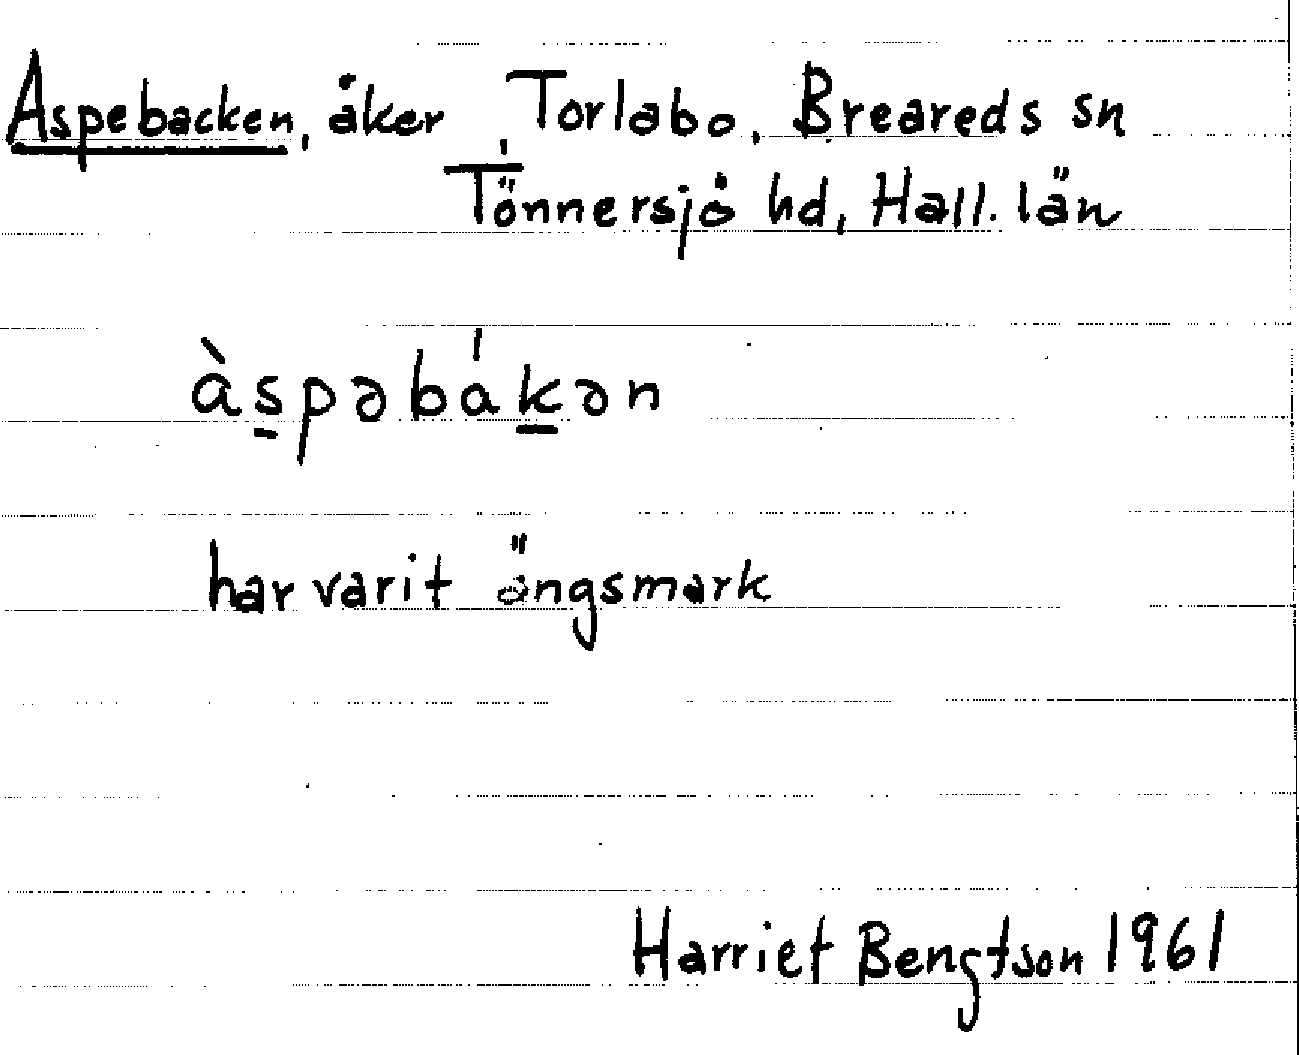 Aspebacken, åker, Torlabo, Breareds sn
Tönnersjö hd, Hall. län
às̱pəbákə̱n
har varit ängsmark
Harriet Bengtson 1961